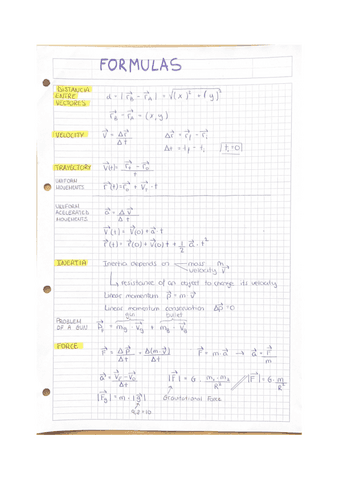 FORMULAS
DISTANCIA ENTRE VECTORES
d = |r⃗_B - r⃗_A| = √(x)² + (y)²
r⃗_B - r⃗_A = (x, y)
VELOCITY v⃗ = Δr⃗/Δt Δr⃗ = r⃗_f - r⃗_i
Δt = t_f - t_i
TRAYECTORY v⃗(t) =
UNIFORM MOVEMENTS r⃗(t) = r⃗_0 + v⃗_0 · t
UNIFORM ACELERATED MOVEMENTS a⃗ = Δv⃗/Δt
v⃗(t) = v⃗(0) + a⃗ · t
r⃗(t) = r⃗(0) + v⃗(0)t + 1/2 a⃗ · t²
INERTIA Inertia depends on mass m
velocity v⃗
↳ resistance of an object to change its velocity
Linear momentum p⃗ = m v⃗
Linear momentum conservation Δp⃗ = 0
PROBLEM OF A GUN gun bullet
FORCE F⃗ = Δp⃗/Δt = Δ(m·v⃗)/Δt F⃗ = m·a⃗ → a⃗ = F⃗/m
a⃗ = v⃗_f - v⃗_0/Δt
|F⃗_g| = m·|g⃗| Gravitational Force